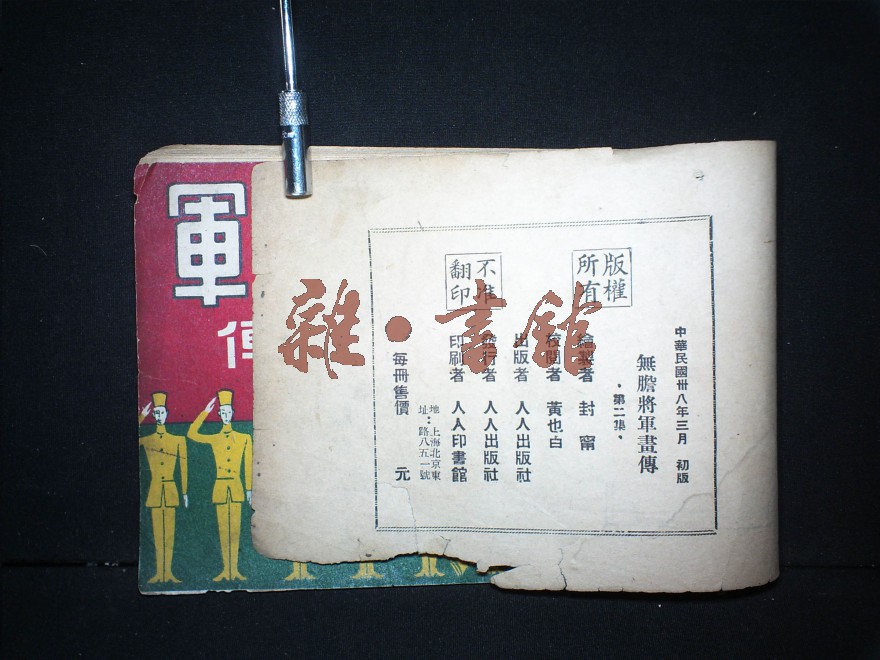 中華民國卅八年三月　初版
無膽將軍畫傳
·第二集·
版權
所有
繪製者　封甯
校閱者　黃也白
出版者　人人出版社
不准
翻印
發行者　人人出版社
印刷者　人人印書館
地址：上海北京東
路八五一號
每冊售價　元
軍
傳
雜·書館